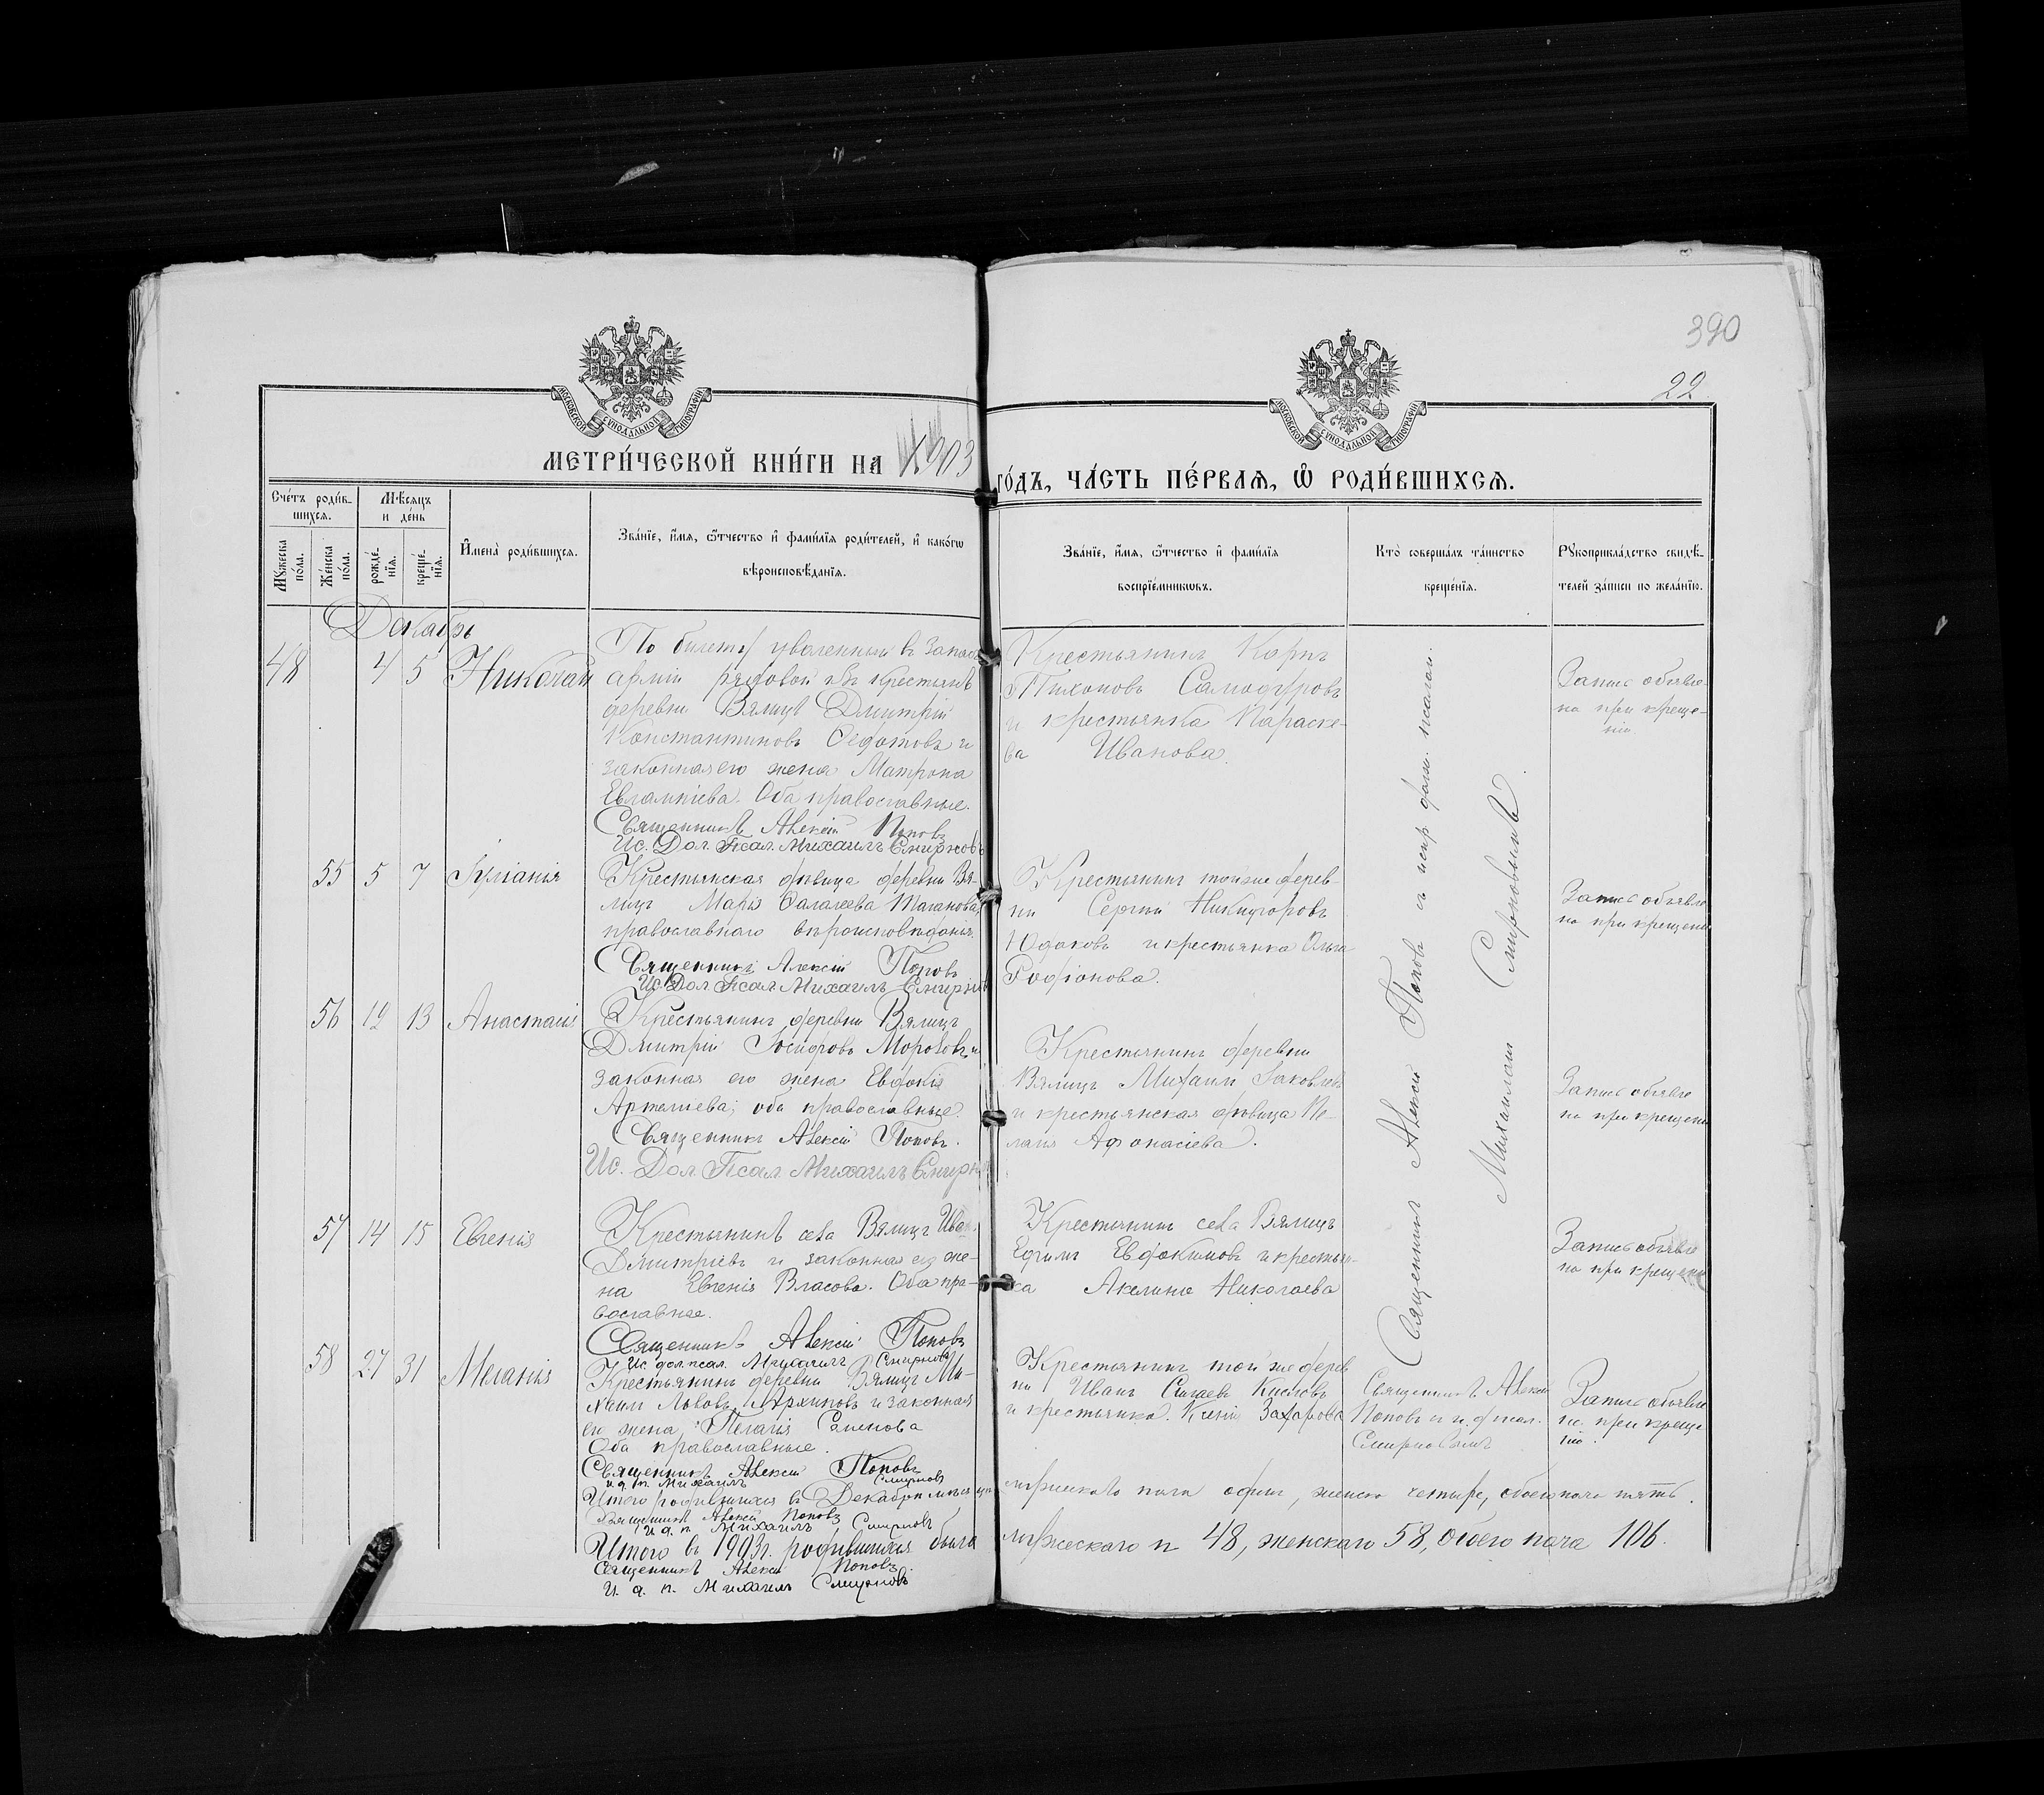 390
22
МОСКОВСКОЙ СУНОДАЛЬНОЙ ТИПОГРАФІИ
МОСКОВСКОЙ СУНОДАЛЬНОЙ ТИПОГРАФІИ
МЕТРИ́ЧЕСКОЙ КНИ́ГИ НА 1903
ГО́ДЪ, ЧА́СТЬ ПЕ́РВАѦ, Ѡ҆ РОДИ́ВШИХСѦ.
Сче́тъ роди́в-
шихсѧ.
Мѣ́сѧцъ
и де́нь
Мꙋ́жеска по́ла.
Же́нска по́ла.
рожде́-нїѧ.
креще́-нїѧ.
И҆мена̀ роди́вшихсѧ.
Зва́нїе, и҆́мѧ, ѻ҆́тчество и҆ фами́лїѧ роди́телей, и҆ како́гѡ
вѣроисповѣ́данїѧ.
Зва́нїе, и҆́мѧ, ѻ҆́тчество и҆ фами́лїѧ
воспрїе́мникѡвъ.
Кто̀ соверша́лъ та́инство
креще́нїѧ.
Рꙋкоприкла́дство свидѣ́-
телей за́писи по жела́нїю.
Декабрь
48 4 5 Николай
По билету уволенный в запас
армии рядовой из крестьянъ
деревни Вялицъ Дмитрій
Константиновъ Федотовъ и
законная его жена Матрона
Евлампіева. Оба православные.
Священникъ Алексій Поповъ
Ис. Дол. Псал. Михаилъ Смирновъ
Крестьянинъ Карпъ
Тихоновъ
и крестьянка Параске-
ва Иванова.
Запись объявле-
на при креще-
ніи.
55 5 7 Іуліанія
Крестьянская дѣвица деревни Вя-
лицъ Марія
православнаго вѣроисповѣданія.
Священникъ Алексій Поповъ
Ис. Дол. Псал. Михаилъ Смирновъ
Крестьянинъ той же дерев-
ни Сергій Никифоровъ
и крестьянка Ольга
Родіонова.
Запись объявле
на при крещени
56 12 13 Анастасія
Крестьянинъ деревни Вялицъ
Дмитрій Іосифовъ Морозовъ и
законная его жена Евдокія
Артеміева; оба православные.
Священникъ Алексій Поповъ.
Ис. Дол. Псал. Михаилъ Смирновъ
Крестьянинъ деревни
Вялицъ Михаилъ Іаковлевъ
и крестьянская дѣвица Пе-
лагія Афонасіева.
Запись объявле
на при крещени
57 14 15 Евгенія
Крестьянинъ села Вялицъ Иванъ
Дмитріевъ и законная его же-
на Евгенія Власова. Оба пра-
вославные.
Священникъ Алексій Поповъ
Ис. дол. псал. Михаилъ Смирновъ
Крестьянинъ села Вялицъ
Ефимъ Евдокимовъ и крестьян-
ка Акелина Николаева
Запись объявле
на при крещени
Священникъ Алексій Поповъ съ испр долж. псалом.
Михаиломъ Смирновымъ
58 27 31 Меланія
Крестьянинъ деревни Вялицъ Ми-
хаилъ Львовъ Архиповъ и законная
его жена Пелагія Семенова
Оба православные.
Священникъ Алексій Поповъ
и. д. п. Михаилъ Смирновъ
Крестьянинъ той же дерев
ни Иванъ
и крестьянка Захарова
Священникъ Алексій
Поповъ съ и. д. псал.
Смирновымъ
Запись объявле
на при креще
ніи.
Итого родившихся въ Декабрѣ мѣсяцѣ мужескаго пола одинъ, женска четыре, обоего пола пять.
Священникъ Алексій Поповъ
и. д. п. Михаилъ Смирновъ
Итого въ 1903 г. родившихся было мужескаго п 48, женскаго 58, обоего пола 106.
Священникъ Алексій Поповъ
и. д. п. Михаилъ Смирновъ